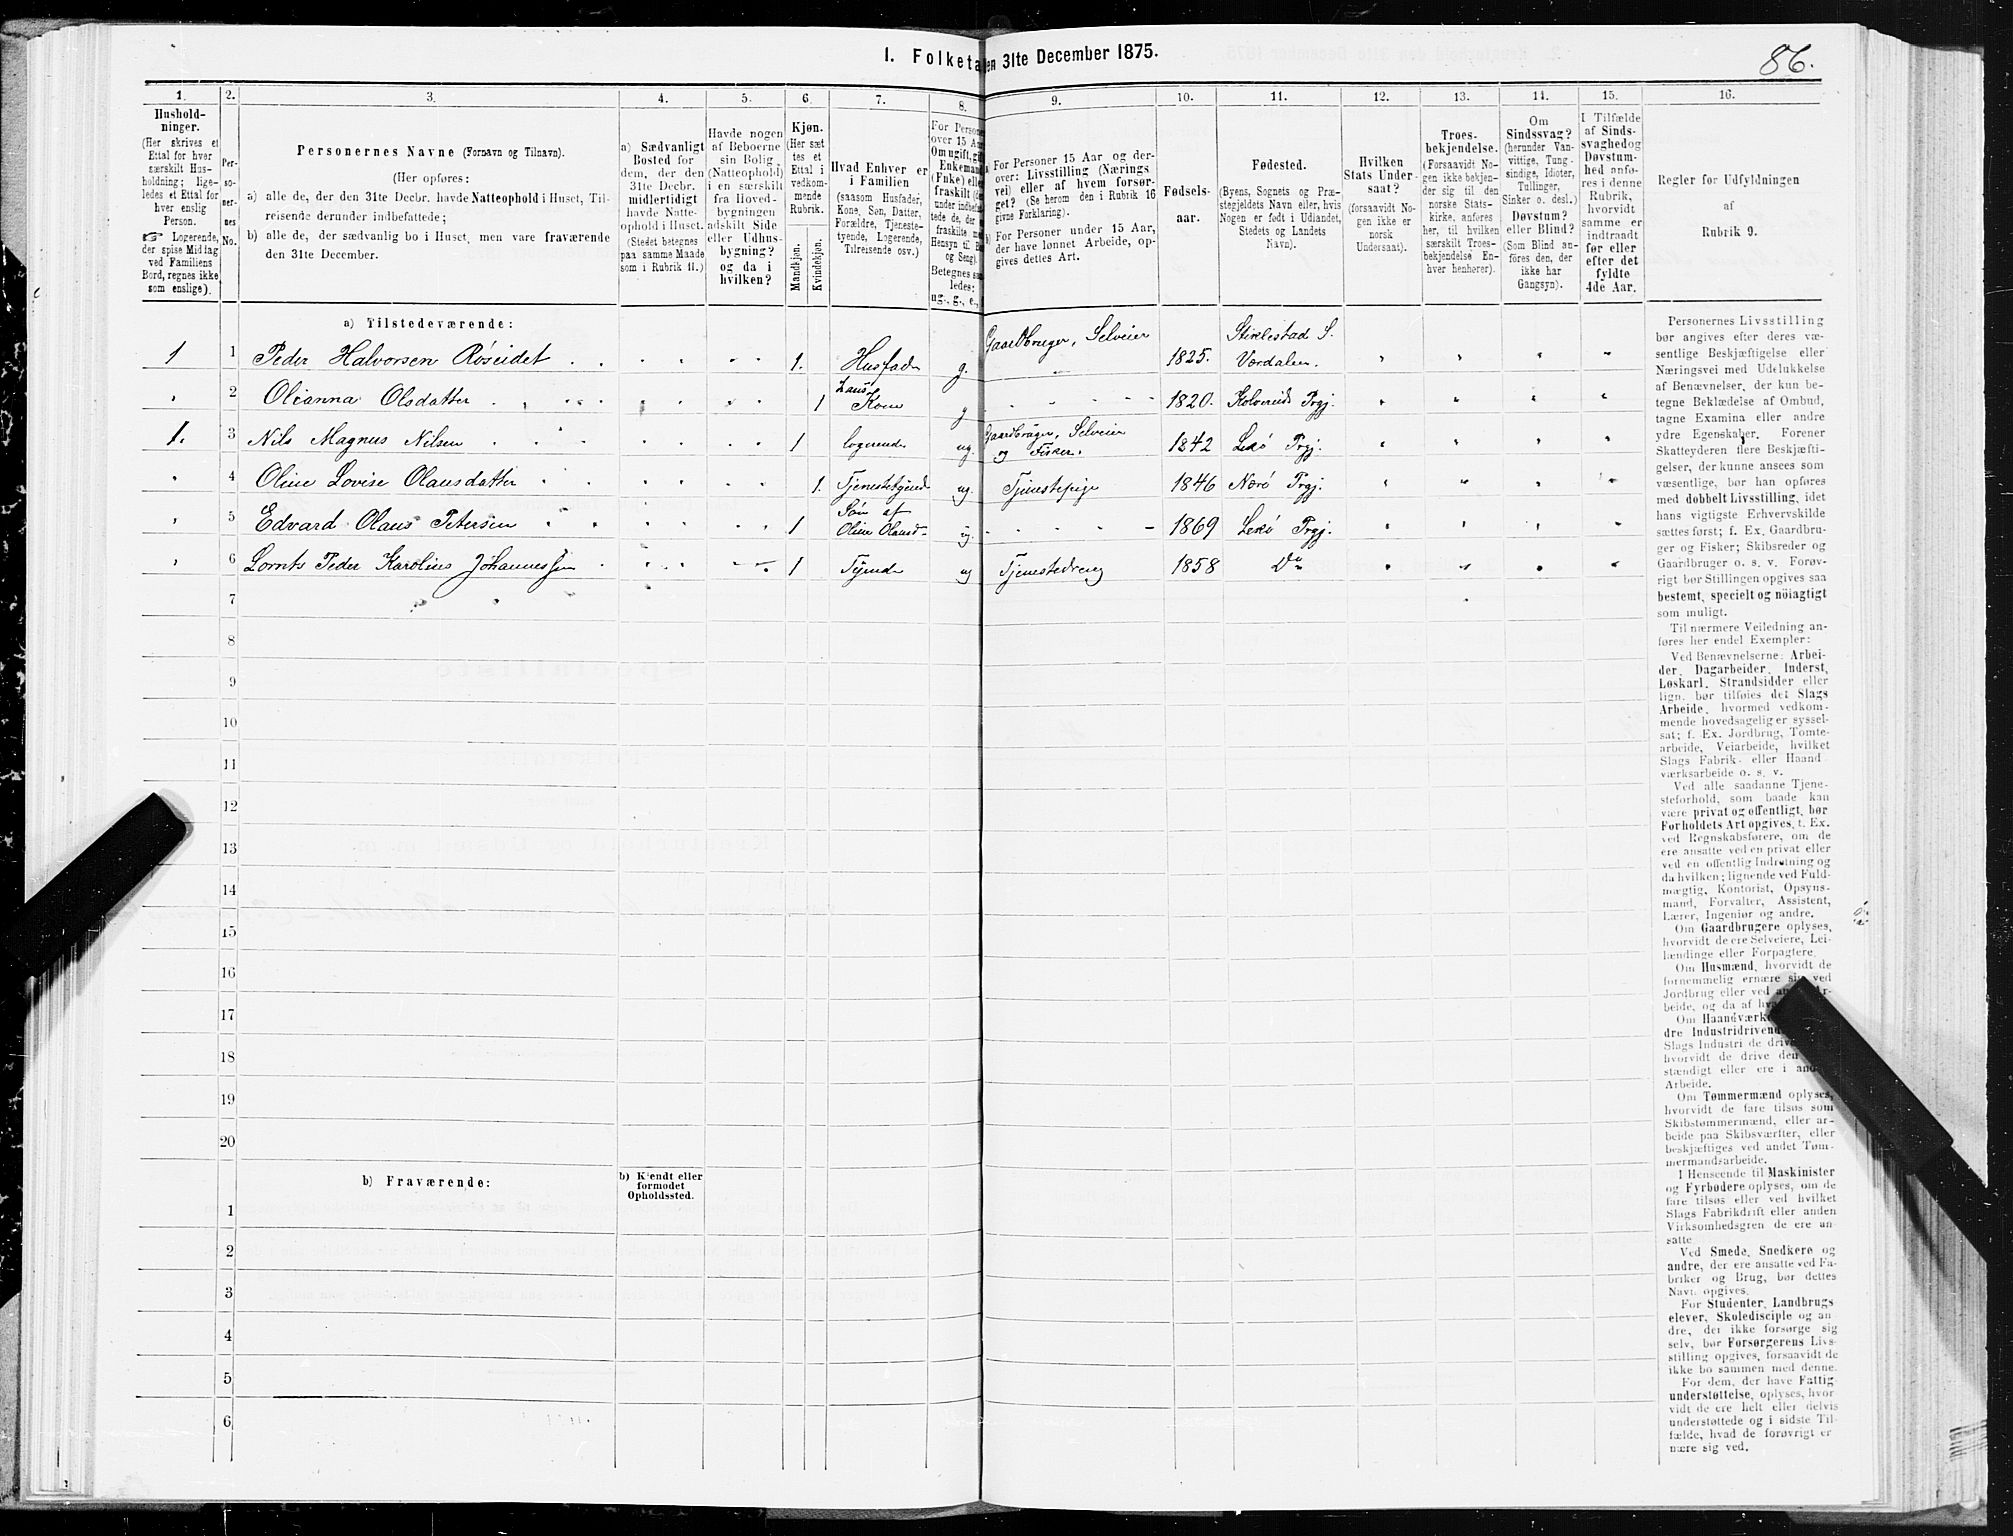 I. Folketa en 31te December 1875.
86.
1.
2.
3.
4.
5.
6.
7.
8.
9.
10.
11.
12.
13.
14.
15.
16.
Hushold-
ninger.
(Her skrives et
Ettal for hver
særskilt Hus-
holdning; lige-
ledes et Ettal for
hver enslig
Person.
☞ Logerende,
der spise Middag
ved Familiens
Bord, regnes ikke
som enslige).
Per-
so-
ner-
nes
No.
Personernes Navne (Fornavn og Tilnavn).
(Her opføres:
a) alle de, der den 31te Decbr. havde Natteophold i Huset, Til-
reisende derunder indbefattede;
b) alle de, der sædvanlig bo i Huset, men vare fraværende
den 31te December.
a) Sædvanligt
Bosted for
dem, der den
31te Decbr.
midlertidigt
havde Natte-
ophold i Huset.
(Stedet betegnes
paa samme Maade
som i Rubrik 11.)
Havde nogen
af Beboerne
sin Bolig
(Natteophold)
i en særskilt
fra Hoved-
bygningen
adskilt Side
eller Udhus-
bygning?
og da i
hvilken?
Kjøn.
(Her sæt
tes et
Ettal i
vedkom-
mende
Rubrik.
Mandkjøn.
Kvindekjøn.
Hvad Enhver er
i Familien
(saasom Husfader,
Kone, Søn, Datter,
Forældre, Tjeneste-
tyende, Logerende,
Tilreisende osv.)
For Persone
over 15 Aa
Om ugift, gi
Enkeman
(Enke) elle
fraskilt (de
under indbefa
tede de, der e
fraskilte m
Hensyn til B
og Seng).
Betegnes saa
ledes:
ug., g., e.,
a) For Personer 15 Aar og der-
over: Livsstilling (Nærings
vei) eller af hvem forsør-
get? (Se herom den i Rubrik 16
givne Forklaring).
b) For Personer under 15 Aar,
der have lønnet Arbeide, op-
gives dettes Art.
Fødsels-
aar.
Fødested.
(Byens, Sognets og Præ-
stegjeldets Navn eller, hvis
Nogen er født i Udlandet,
Stedets og Landets
Navn).
Hvilken
Stats Under-
saat?
(forsaavidt No-
gen ikke er
norsk
Undersaat).
Troes-
bekjendelse.
(Forsaavidt No-
gen ikke bekjen-
der sig til den
norske Stats-
kirke, anføres
her, til hvilken
særskilt Troes-
bekjendelse En-
hver henhører).
Om
Sindssvag?
(herunder Van-
vittige, Tung-
sindige, Idioter,
Tullinger,
Sinker o. desl.)
Døvstum?
eller Blind?
(Som Blind an-
føres den, der
ikke har
Gangsyn).
I Tilfælde
af Sinds-
svaghed og
Døvstum-
hed anfø-
res i denne
Rubrik,
hvorvidt
samme er
indtraadt
før eller
efter det
fyldte
4de Aar.
Regler for Udfyldningen
af
Rubrik 9.
a) Tilstedeværende:
1 1 Peder Halvorsen Røseidet 1. Husfader g. Gaardbruger, Selveier 1825. Stiklestad S. Værdalen.
2 Olianna Olsdatter 1 hans Kone g 1820. Kolvereids Prgj.
1. 3 Nils Magnus Nilsen 1 logerende ug. Gaardbruger, Selveier og Fisker. 1842 Lekø Prgj.
4 Oline Lovise Olausdatter 1. Tjenestetyende ug. Tjenestepige 1846 Nærø Prgj.
5 Edvard Olaus Petersen 1 Søn af Oline Olausd. ug. 1869 Lekø Prgj.
6 Lornts Peder Karolius Johannessen 1 Tyende ug Tjenestedreng 1858 Do
7
8
9
10
11
12
13
14
15
16
17
18
19
20
b) Fraværende:
b) Kjendt eller
formodet
Opholdssted.
1
2
3
4
5
6
Personernes Livsstilling
bør angives efter deres væ-
sentlige Beskjæftigelse eller
Næringsvei med Udelukkelse
af Benævnelser, der kun be-
tegne Beklædelse af Ombud,
tagne Examina eller andre
ydre Egenskaber. Forener
Skatteyderen flere Beskjæfti-
gelser, der kunne ansees som
væsentlige, bør han opføres
med dobbelt Livsstilling, idet
hans vigtigste Erhvervskilde
sættes først; f. Ex. Gaardbru-
ger og Fisker; Skibsreder og
Gaardbruger o. s. v. Forøv-
rigt bør Stillingen opgives saa
bestemt, specielt og nøiagtigt
som muligt.
Til nærmere Veiledning an-
føres her endel Exempler:
Ved Benævnelserne: Arbei-
der, Dagarbeider, Inderst,
Løskarl, Strandsidder eller
lign. bør tilføies det Slags
Arbeide, hvormed vedkom-
mende hovedsagelig er syssel-
sat; f. Ex. Jordbrug, Tomte-
arbeide, Veiarbeide, hvilket
Slags Fabrik- eller Haand-
værksarbeide o. s. v.
Ved alle saadanne Tjene-
steforhold, som baade kan
være privat og offentligt, bør
Forholdets Art opgives, t. Ex.
ved Regnskabsførere, om de
ere ansatte ved en privat eller
ved en offentlig Indretning og
da hvilken; lignende ved Fuld-
mægtig, Kontorist, Opsyns-
mand, Forvalter, Assistent,
Lærer, Ingeniør og andre.
Om Gaardbrugere oplyses,
hvorvidt de ere Selveiere, Lei-
lændinge eller Forpagtere.
Om Husmænd, hvorvidt de
fornemmelig ernære sig ved
Jordbrug eller ved an Ar-
beide, og da af hva
Om Haandværke
dre Industridrivend
Slags Industri de drive
hvorvidt de drive den
stændigt eller ere i and
Arbeide.
Om Tømmermænd oplyses,
hvorvidt de fare tilsøs som
Skibstømmermænd, eller ar-
beide paa Skibsværfter, eller
beskjæftiges ved andet Tøm-
mermandsarbeide.
I Henseende til Maskinister
og Fyrbødere oplyses, om de
fare tilsøs eller ved hvilket
Slags Fabrikdrift eller anden
Virksomhedsgren de ere an-
satte
Ved Smede, Snedkere og
andre, der ere ansatte ved Fa-
briker og Brug, bør dettes
Navn opgives.
For Studenter, Landbrugs
elever, Skoledisciple og an-
dre, der ikke forsørge sig
selv, bør Forsørgerens Livs-
stilling opgives, forsaavidt de
ikke bo sammen med denne.
For dem, der have Fattig-
understøttelse, oplyses, hvor-
vidt de ere helt eller delvis
understøttede og i sidste Til-
fælde, hvad de forøvrigt er
nære sig ved.